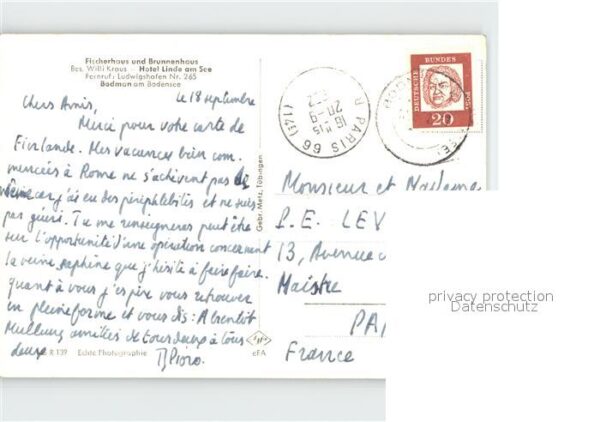 Fischerhaus und Brunnenhaus
Bes. Willi Kraus - Hotel Linde am See
Fernruf: Ludwigshafen Nr. 265
Bodman am Bodensee
le 18 septembre
Chers Amis,
Merci pour votre carte de
Finlande. Mes vacances bien com-
mencées à Rome ne s'achèvent pas
car j'ai eu des périphlébites et ne suis
pas guéri. Tu me renseigneras peut être
sur l'opportunité d'une opération concernant
la veine saphène que j'hésite à faire faire.
quant à vous j'espère vous retrouver
en pleine forme et vous dis: A bientôt
Meilleures amitiés de tous deux à tous
deux
R 139 Echte Photographie
eFA
Gebr. Metz, Tübingen
PARIS 66 (141)
16 H 15
20-9
DEUTSCHE BUNDESPOST
20
Monsieur et Madame
P.E. LEV
13, Avenue
Maistre
PA
France
privacy protection
Datenschutz